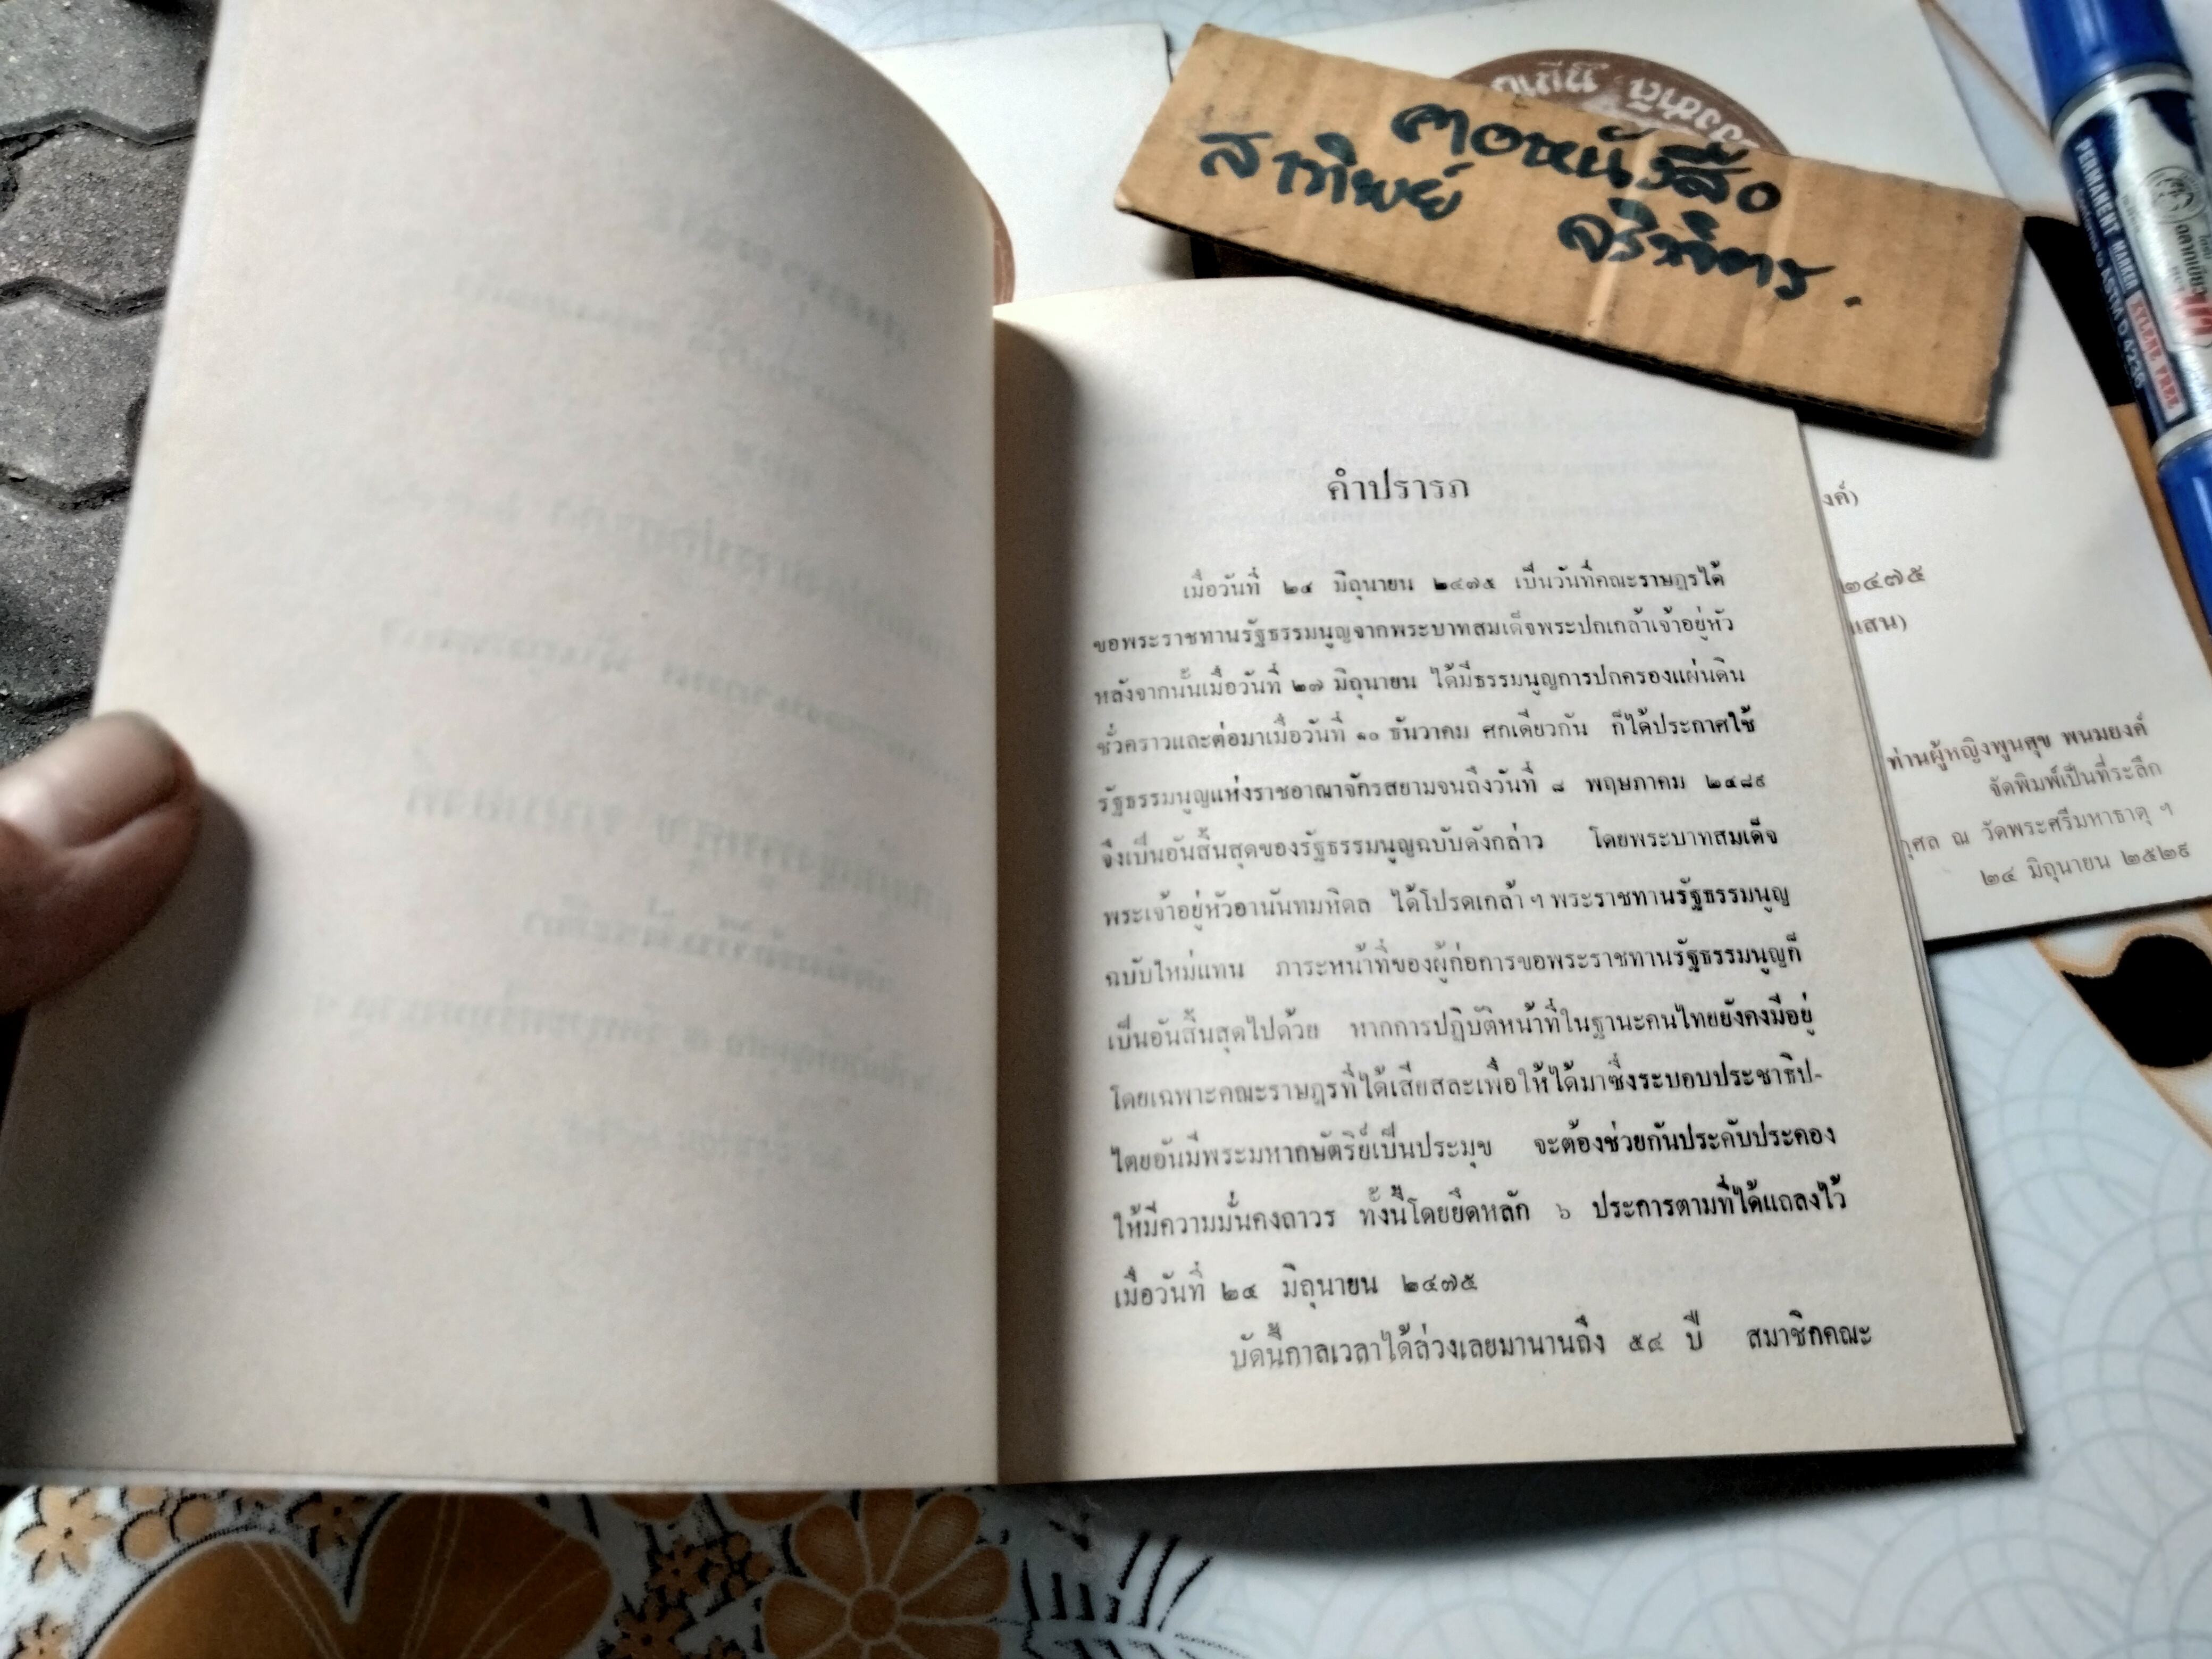 คอหนังสือ
สาทิพย์
คำปรารภ
เมื่อวันที่ ๒๔ มิถุนายน ๒๔๗๕ เป็นวันที่คณะราษฎรได้
ขอพระราชทานรัฐธรรมนูญจากพระบาทสมเด็จพระปกเกล้าเจ้าอยู่หัว
หลังจากนั้นเมื่อวันที่ ๒๗ มิถุนายน ได้มีธรรมนูญการปกครองแผ่นดิน
ชั่วคราวและต่อมาเมื่อวันที่ ๑๐ ธันวาคม ศกเดียวกัน ก็ได้ประกาศใช้
รัฐธรรมนูญแห่งราชอาณาจักรสยามจนถึงวันที่ ๘ พฤษภาคม ๒๔๘๙
จึงเป็นอันสิ้นสุดของรัฐธรรมนูญฉบับดังกล่าว โดยพระบาทสมเด็จ
พระเจ้าอยู่หัวอานันทมหิดล ได้โปรดเกล้า ฯ พระราชทานรัฐธรรมนูญ
ฉบับใหม่แทน ภาระหน้าที่ของผู้ก่อการขอพระราชทานรัฐธรรมนูญก็
เป็นอันสิ้นสุดไปด้วย หากการปฏิบัติหน้าที่ในฐานะคนไทยยังคงมีอยู่
โดยเฉพาะคณะราษฎรที่ได้เสียสละเพื่อให้ได้มาซึ่งระบอบประชาธิป-
ไตยอันมีพระมหากษัตริย์เป็นประมุข จะต้องช่วยกันประคับประคอง
ให้มีความมั่นคงถาวร ทั้งนี้โดยยึดหลัก ๖ ประการตามที่ได้แถลงไว้
เมื่อวันที่ ๒๔ มิถุนายน ๒๔๗๕
บัดนี้กาลเวลาได้ล่วงเลยมานานถึง ๕๔ ปี สมาชิกคณะ
งค์)
๒๔๗๕
แสน)
ท่านผู้หญิงพูนศุข พนมยงค์
จัดพิมพ์เป็นที่ระลึก
กุศล ณ วัดพระศรีมหาธาตุ ฯ
๒๔ มิถุนายน ๒๕๒๙
PERMANENT MARKER
XYLENE FREE
ASTM D 4236